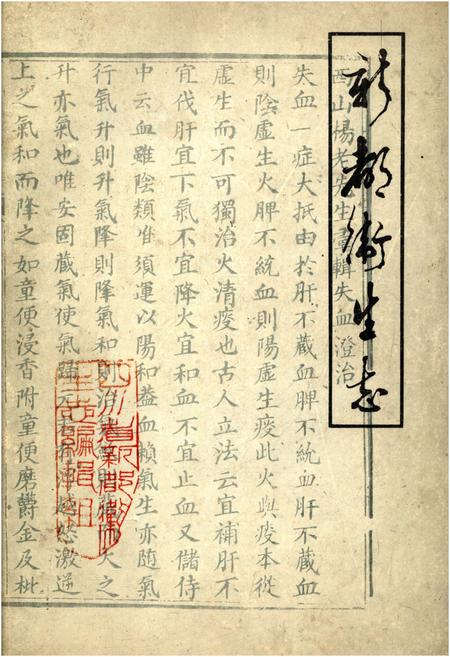 新都衛生志
西山楊老先生輯失血澄治
失血一症大抵由於肝不藏血脾不統血肝不藏血
則陰虛生火脾不統血則陽虛生疫此火與疫本從
虛生而不可獨治火清疫也古人立法云宜補肝不
宜伐肝宜下氣不宜降火宜和血不宜止血又儲侍
中云血雖陰類惟須運以陽和蓋血賴氣生亦随氣
行氣升則升氣降則降氣和則治火之
升亦氣也唯安固蔵氣使氣歸元激逆
上之氣和而降之如童便浸香附童便摩欝金及枇
四川省新都衛
生志編